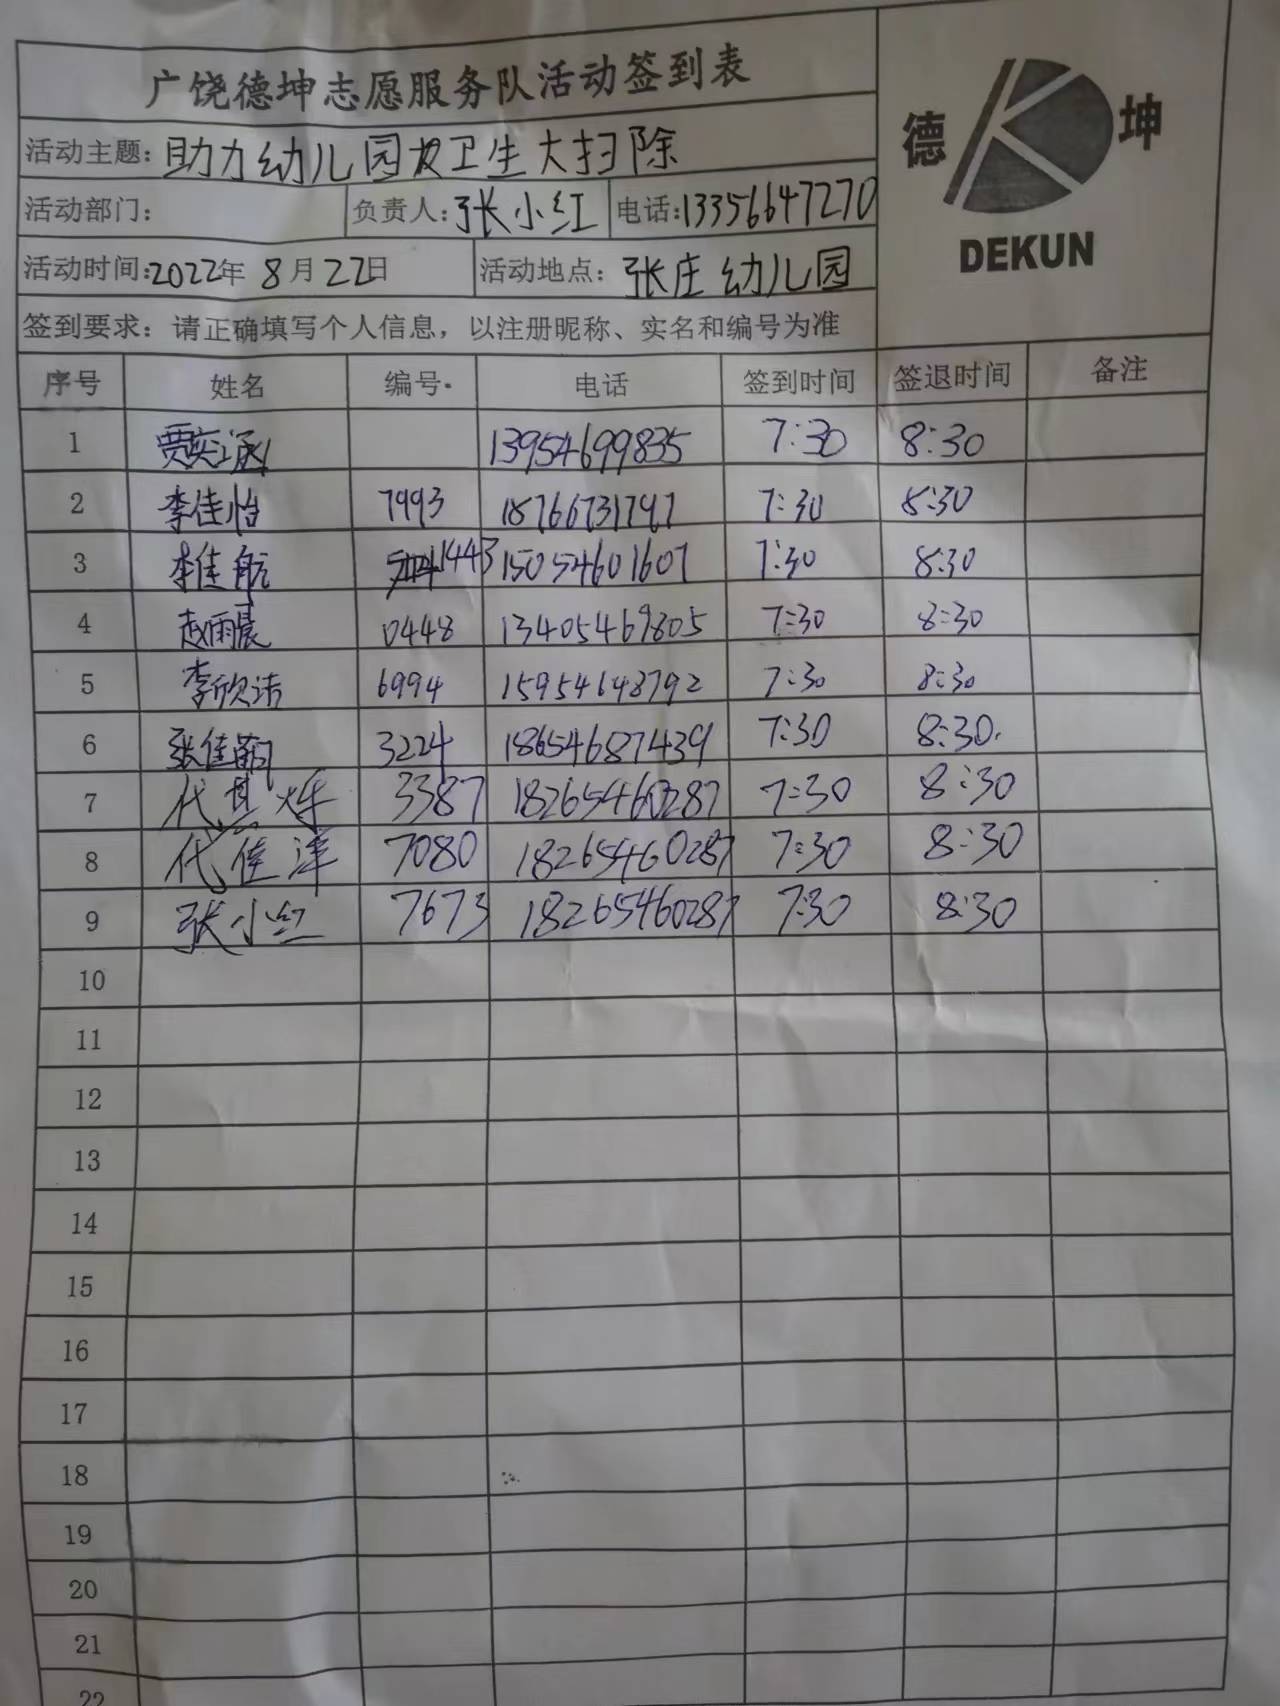 广饶德坤志愿服务队活动签到表
德 坤
DEKUN
活动主题: 助力幼儿园卫生大扫除
活动部门: 负责人: 张小红 电话: 13356647270
活动时间: 2022年 8月 22日 活动地点: 张庄幼儿园
签到要求: 请正确填写个人信息, 以注册昵称、实名和编号为准
序号 姓名 编号. 电话 签到时间 签退时间 备注
1 贾奕涵 13954699835 7:30 8:30
2 李佳怡 7993 18766731797 7:30 8:30
3 李佳航 1443 15054601607 7:30 8:30
4 赵雨晨 0448 13405469805 7:30 8:30
5 李欣洁 6994 15954648792 7:30 8:30
6 张佳萌 3224 18654687439 7:30 8:30.
7 代 3387 18265460287 7:30 8:30
8 代佳洋 7080 18265460287 7:30 8:30
9 张小红 7673 18265460287 7:30 8:30
10
11
12
13
14
15
16
17
18
19
20
21
22